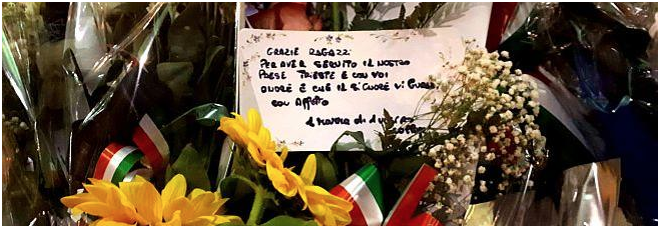 GRAZIE RAGAZZI
PER AVER SERVITO IL NOSTRO
PAESE TRIESTE È CON VOI
ONORE È CHE IL SIGNORE VI GUARDI
CON AFFETTO
di